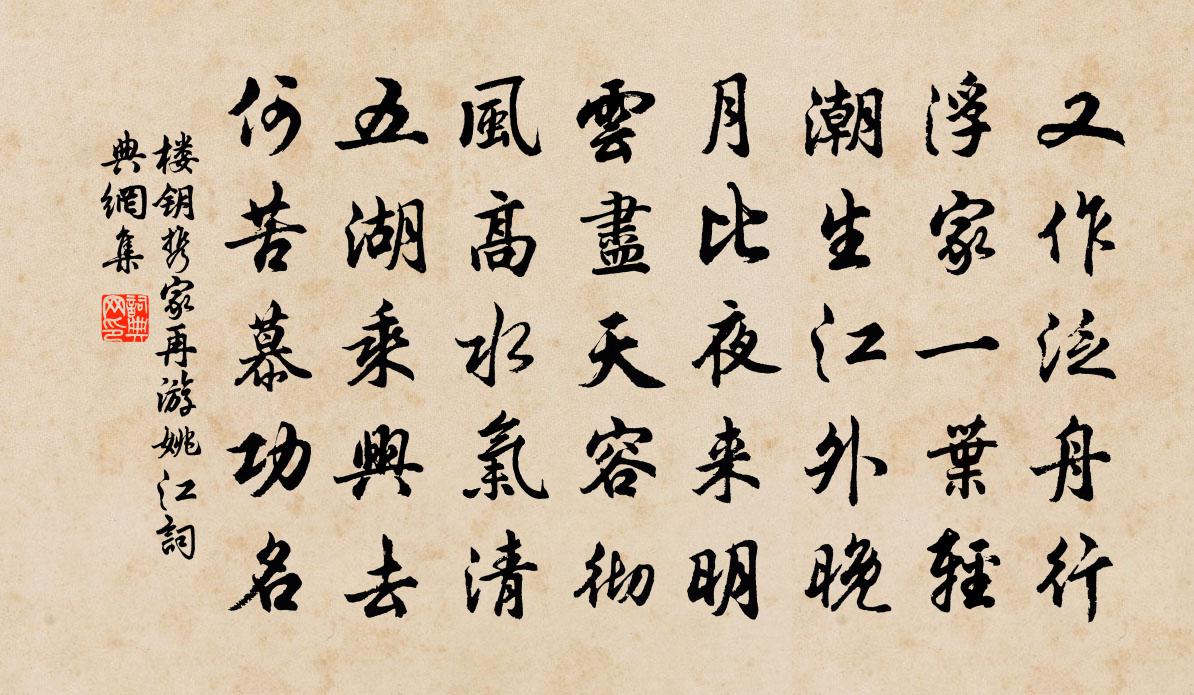 又作泛舟行
浮家一葉輕
潮生江外晚
月比夜来明
雲盡天容彻
風高水氣清
五湖乘興去
何苦慕功名
楼钥携家再游姚江詞
典網集
詞典網印